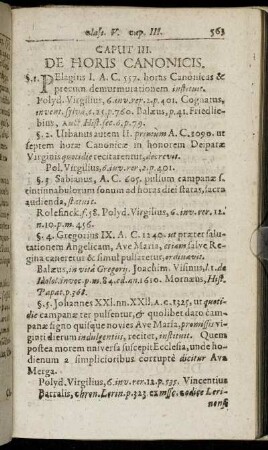 Class. V. Cap. III. 563
CAPUT III.
DE HORIS CANONICIS.
§. 1. Pelagius I. A. C. 557. horas Canonicas &
precum demurmurationem instituit.
Polyd. Virgilius, 6. inv. rer. 2. p. 401. Cognatus,
invent. 1.25. p. 760. Balæus, p. 41. Friedlie-
bius, Hist. 6. p. 79.
§. 2. Urbanus autem II. A. C. 1090. ut
septem horæ Canonicæ in honorem Deiparæ
Virginis quotidie recitarentur, decrevit.
Pol. Virgilius, 6. inv. rer. 2. p. 401.
§. 3. Sabianus, A. C. 605. pulsum campanæ s.
tintinnabulorum sonum ad horas diei statas, sacra
audienda, statuit.
Rolefinck. f. 58. Polyd. Virgilius, 6. inv. rer. 12.
n. 10. p. m. 456.
§. 4. Gregorius IX. A. C. 1240. ut præter salu-
tationem Angelicam, Ave Maria, etiam salve Re-
gina caneretur & simul pulsaretur, ordinavit.
Balæus, in vitâ Gregorij. Joachim. Visinus, l. 1. de
p. m. 84. ed. an. 1610. Mornæus, Hist.
Papat. p. 368.
§. 5. Johannes XXI. nn. XXII. A. C. 1325, ut quoti-
die campana ter pulsentur, & quolibet dato cam-
panæ signo quisque novies Ave Maria, promissis vi-
ginti dierum indulgentiis, recitet, instituit. Quem
postea morem universa suscepit Ecclesia, unde ho-
dienum à simplicioribus corruptè dicitur Ava
Merga.
Polyd. Virgilius, 6. inv. rer. 12. p. 535. Vincentius
Barralis, chron. Lerin. p. 323. ex msc. codice Leri-
nensi